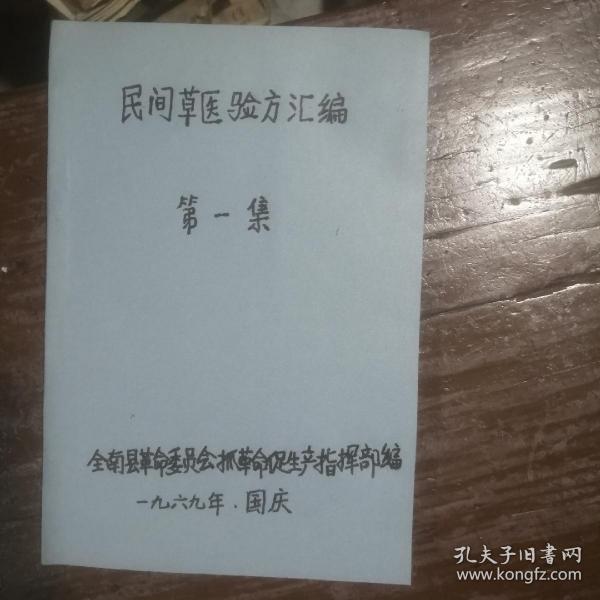 民间草医验方汇编
第一集
全南县革命委员会抓革命促生产指挥部编
一九六九年.国庆
孔夫子旧书网
www.kongfz.com